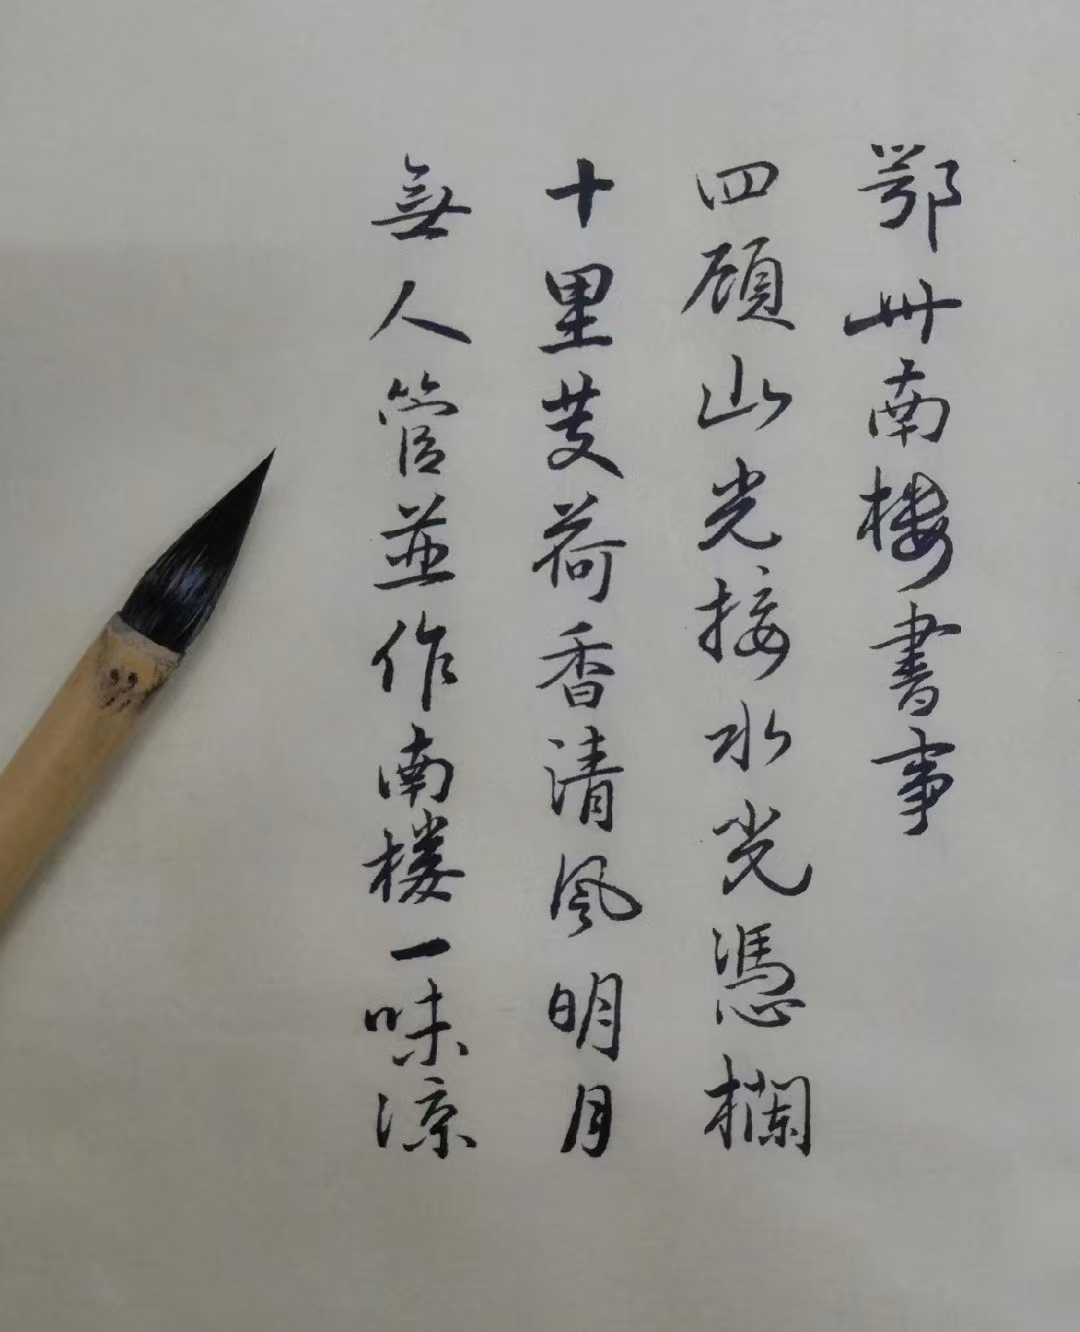 鄂州南楼書事
四顾山光接水光憑欄
十里芰荷香清风明月
無人管並作南楼一味凉